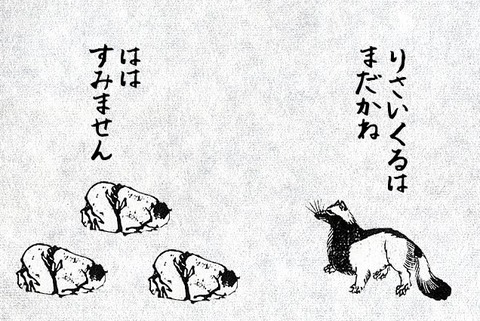 りさいくるは
まだかね
はは
すみません